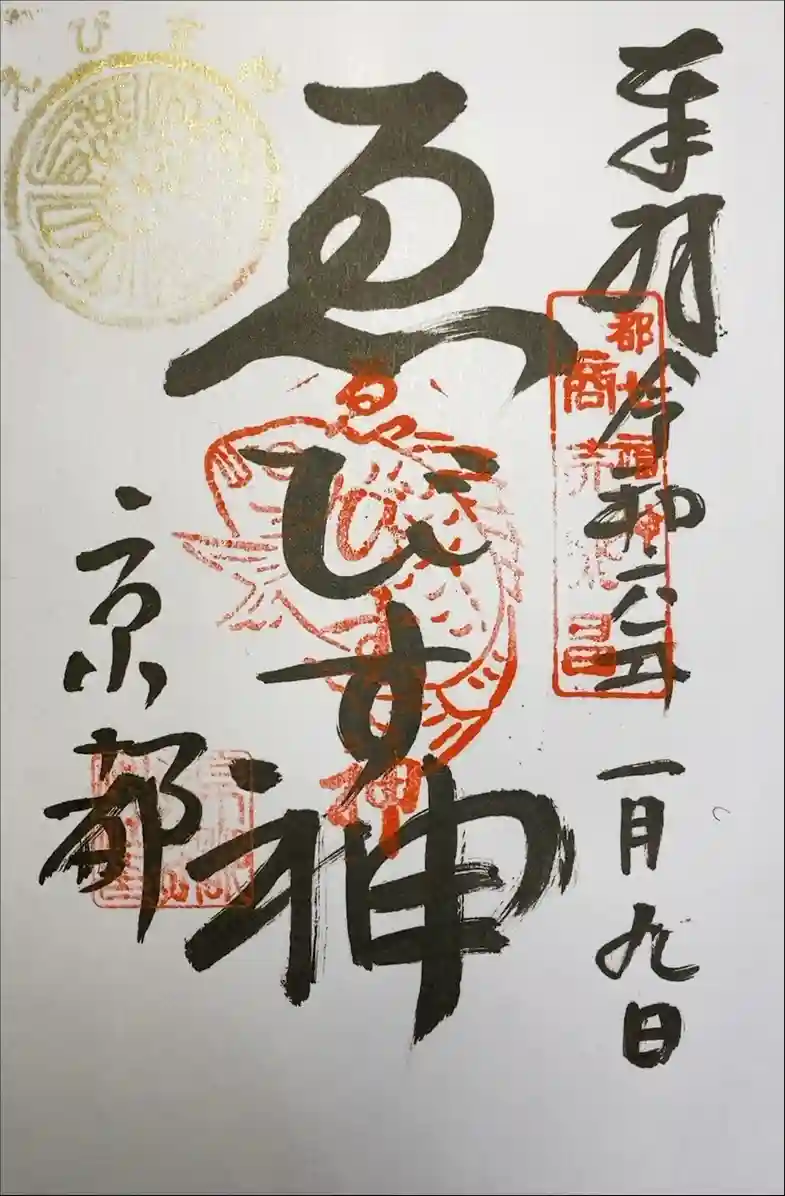 奉拝 令和六年 一月九日
都七福神
商売繁昌
ゑびす神
ゑびす神
京都